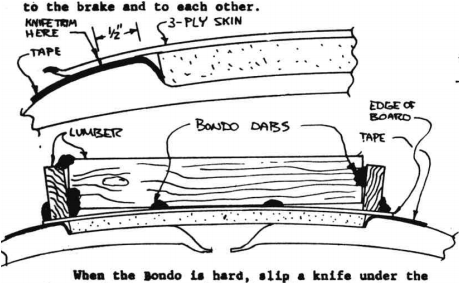 to the brake and to each other.
KNIFE TRIM
HERE
1/2"
3-PLY SKIN
TAPE
EDGE OF
BOARD
LUMBER
BONDO DABS
TAPE
When the Bondo is hard, slip a knife under the